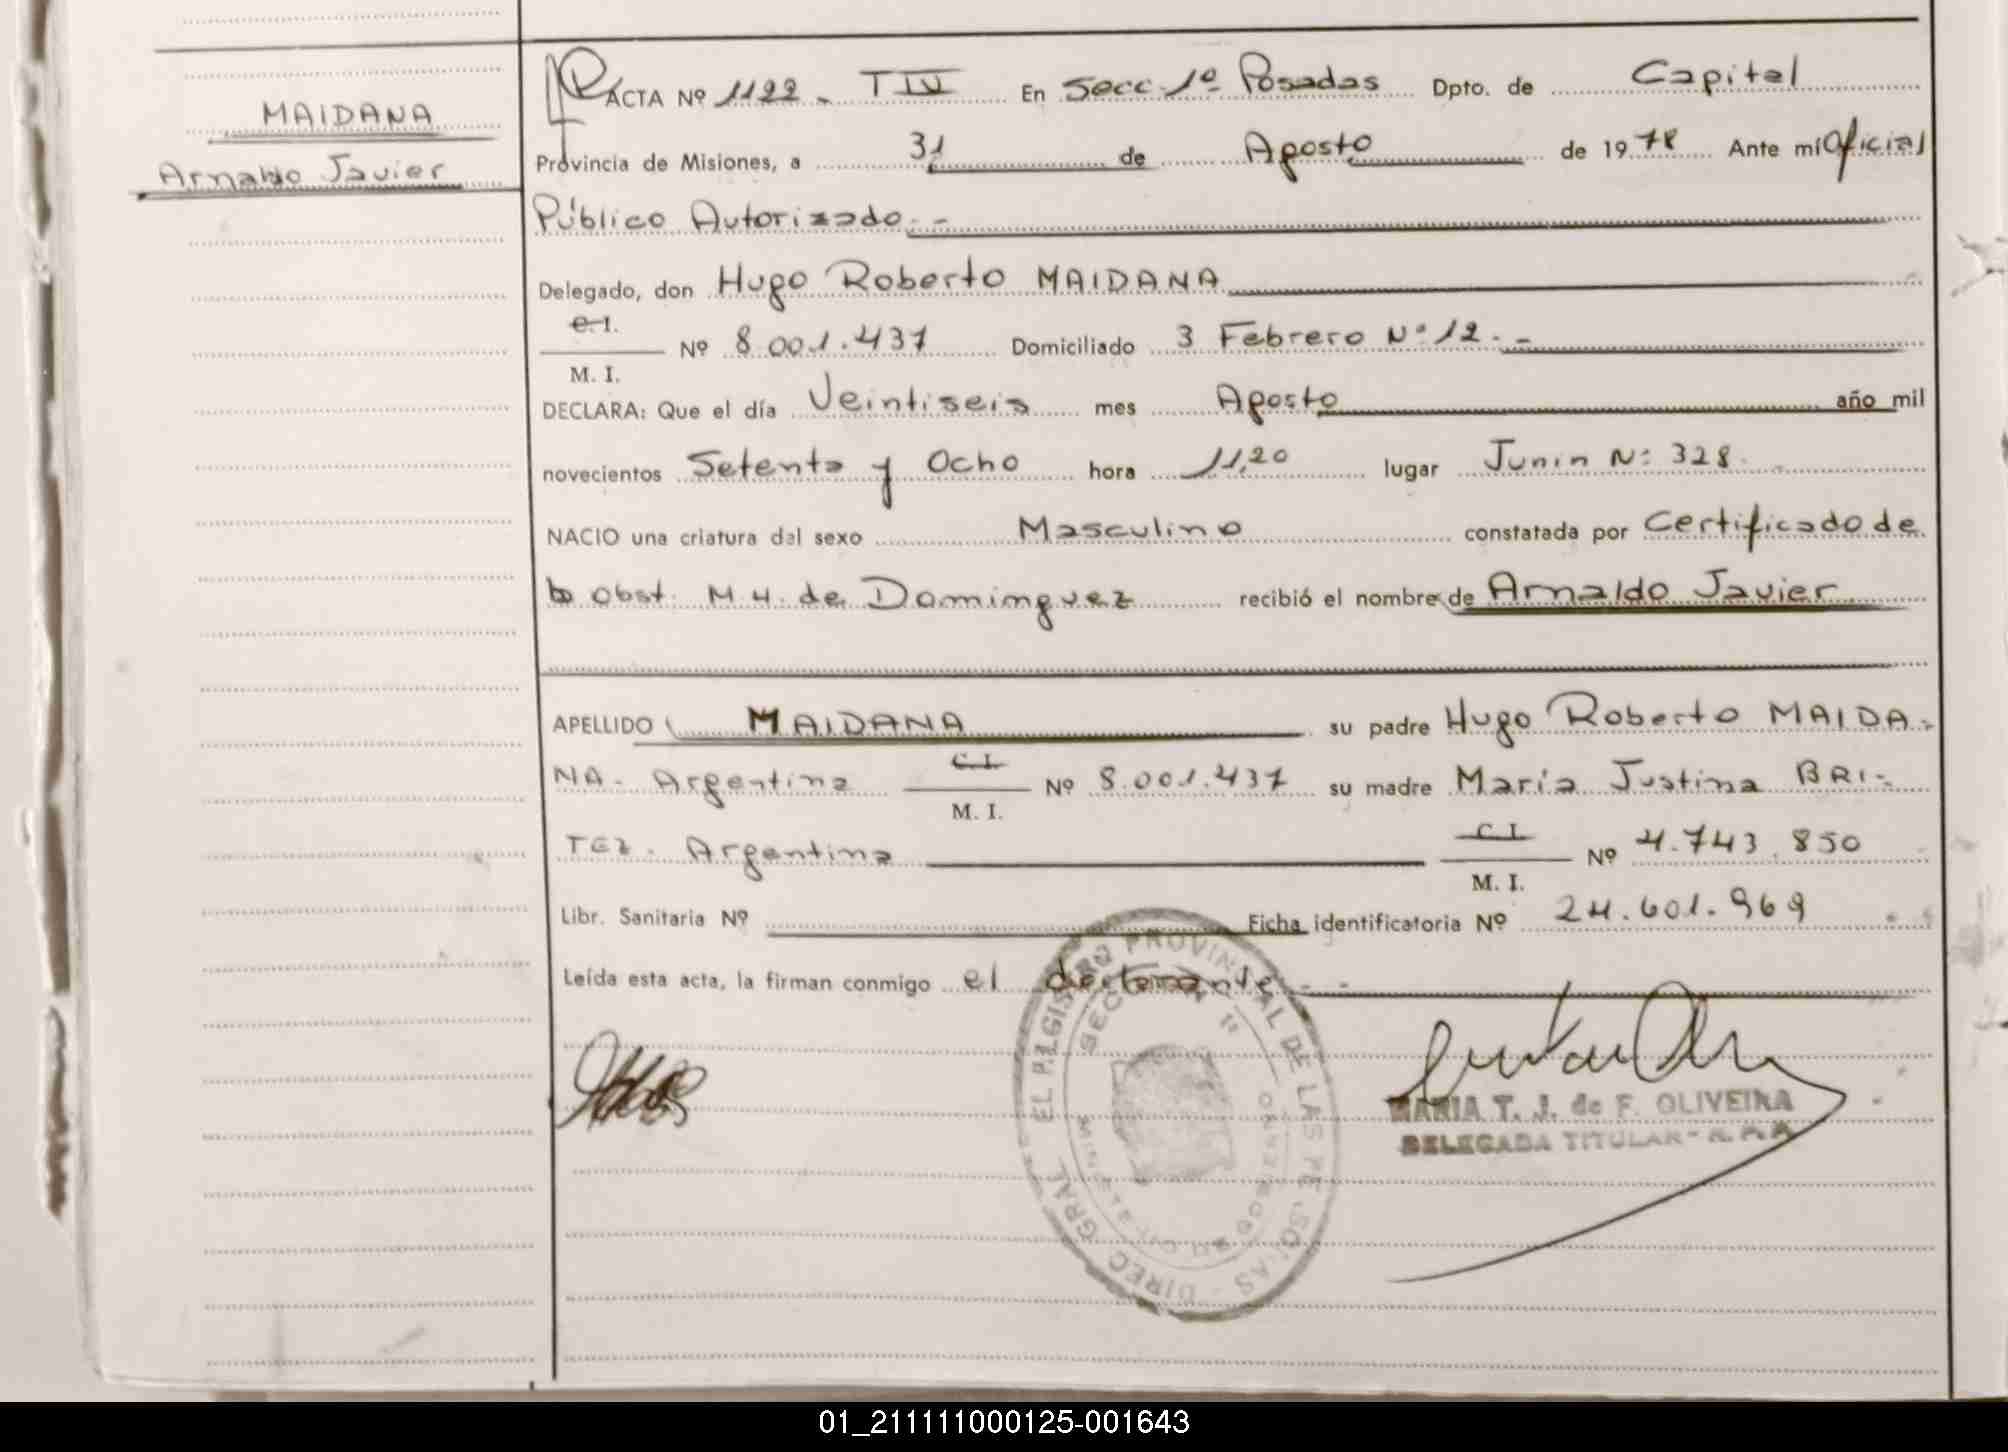 MAIDANA
Arnaldo Javier
ACTA Nº 1122 - T IV En Secc. 1º Posadas Dpto. de Capital
Provincia de Misiones, a 31 de Agosto de 1978 Ante mí Oficial
Público Autorizado.-
Delegado, don Hugo Roberto MAIDANA
C.I.
M. I. Nº 8.001.437 Domiciliado 3 Febrero Nº 12.-
DECLARA: Que el día Veintiseis mes Agosto año mil
novecientos Setenta y Ocho hora 11,20 lugar Junin Nº 328.
NACIO una criatura del sexo Masculino constatada por Certificado de
Obst. M.H. de Dominguez recibió el nombre de Arnaldo Javier
APELLIDO MAIDANA su padre Hugo Roberto MAIDA-
NA - Argentina C.I. M. I. Nº 8.001.437 su madre María Justina BRI-
TEZ - Argentina C.I. M. I. Nº 4.743.850
Libr. Sanitaria Nº Ficha identificatoria Nº 24.601.969
Leída esta acta, la firman conmigo el declarante.-
DIREC. GRAL. DEL REGISTRO PROVINCIAL DE LAS PERSONAS
SECCION 1º
MARIA T. J. de F. OLIVEIRA
DELEGADA TITULAR - R.P.P.
01_211111000125-001643